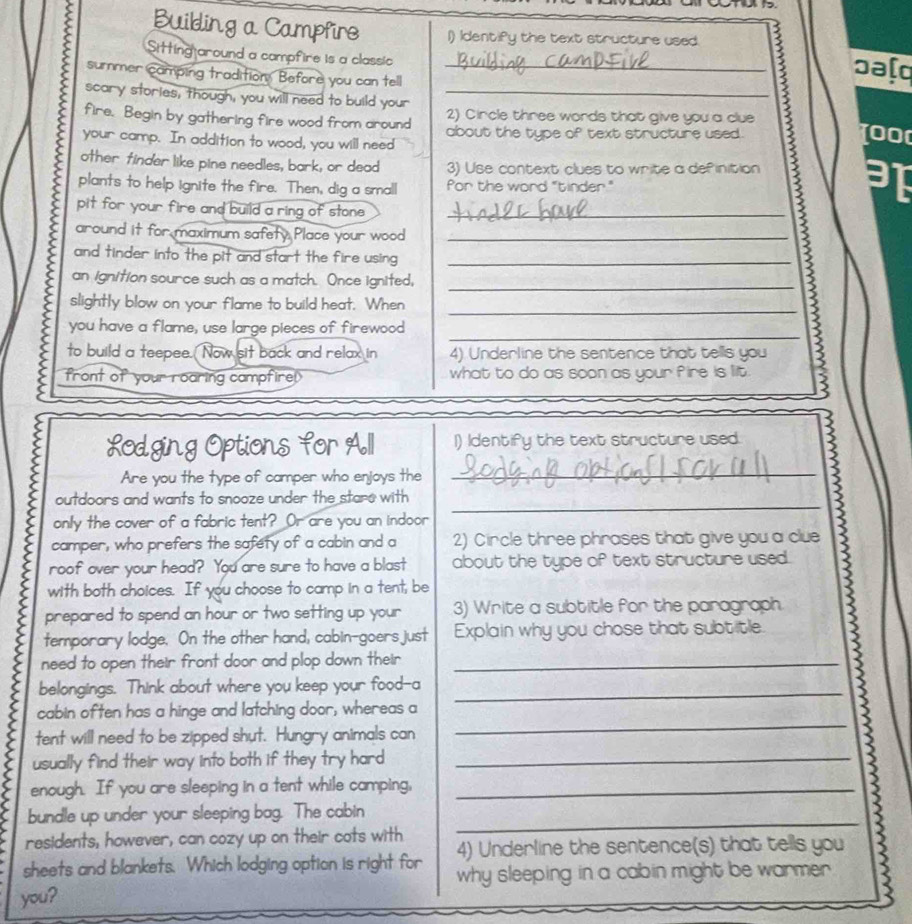 Building a Campfire
Sitting around a campfire is a classic
summer camping tradition. Before you can tell
scary stories, though, you will need to build your
fire. Begin by gathering fire wood from around
your camp. In addition to wood, you will need
other tinder like pine needles, bark, or dead
plants to help ignite the fire. Then, dig a small
pit for your fire and build a ring of stone
around it for maximum safety. Place your wood
and tinder into the pit and start the fire using
an ignition source such as a match. Once ignited,
slightly blow on your flame to build heat. When
you have a flame, use large pieces of firewood
to build a teepee. Now sit back and relax in
front of your roaring campfire!
1) Identify the text structure used.
Building campfire
2) Circle three words that give you a clue
about the type of text structure used.
3) Use context clues to write a definition
for the word "tinder."
tinder have
4) Underline the sentence that tells you
what to do as soon as your fire is lit.
Lodging Options for All
Are you the type of camper who enjoys the
outdoors and wants to snooze under the stars with
only the cover of a fabric tent? Or are you an indoor
camper, who prefers the safety of a cabin and a
roof over your head? You are sure to have a blast
with both choices. If you choose to camp in a tent, be
prepared to spend an hour or two setting up your
temporary lodge. On the other hand, cabin-goers just
need to open their front door and plop down their
belongings. Think about where you keep your food-a
cabin often has a hinge and latching door, whereas a
tent will need to be zipped shut. Hungry animals can
usually find their way into both if they try hard
enough. If you are sleeping in a tent while camping,
bundle up under your sleeping bag. The cabin
residents, however, can cozy up on their cots with
sheets and blankets. Which lodging option is right for
you?
1) Identify the text structure used.
Lodging options for all
2) Circle three phrases that give you a clue
about the type of text structure used.
3) Write a subtitle for the paragraph.
Explain why you chose that subtitle.
4) Underline the sentence(s) that tells you
why sleeping in a cabin might be warmer.